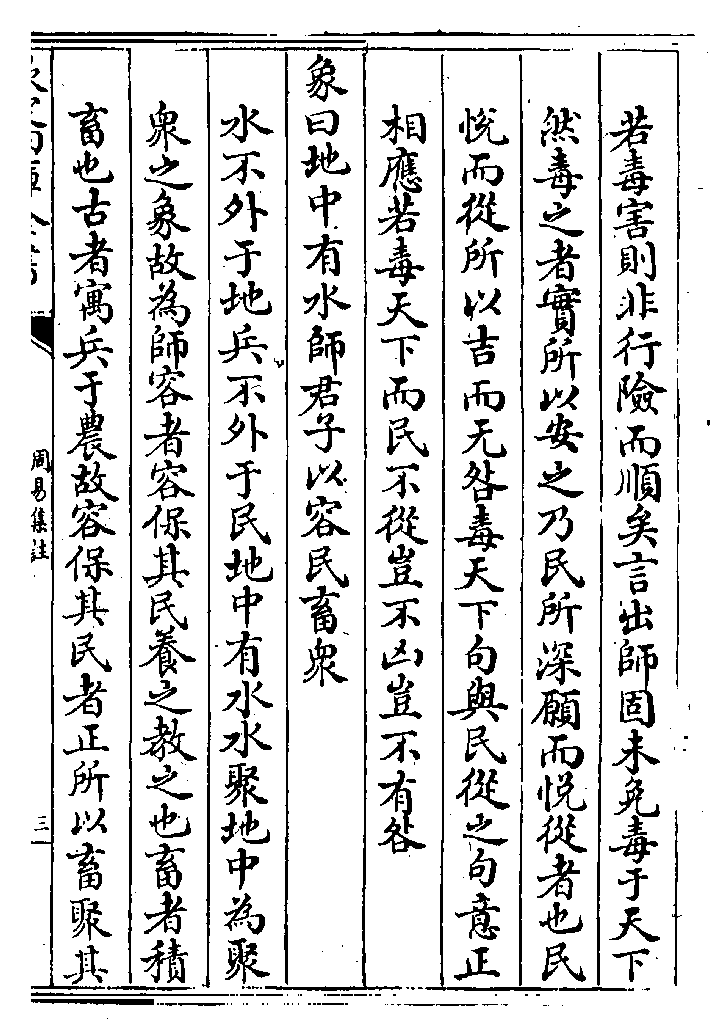 若毒害則非行險而順矣言出師固未免毒于天下
然毒之者實所以安之乃民所深願而悅從者也民
悅而從所以吉而无咎毒天下句與民從之句意正
相應若毒天下而民不從豈不凶豈不有咎
象曰地中有水師君子以容民畜衆
水不外于地兵不外于民地中有水水聚地中為聚
衆之象故為師容者容保其民養之教之也畜者積
畜也古者寓兵于農故容保其民者正所以畜聚其
周易集註
三